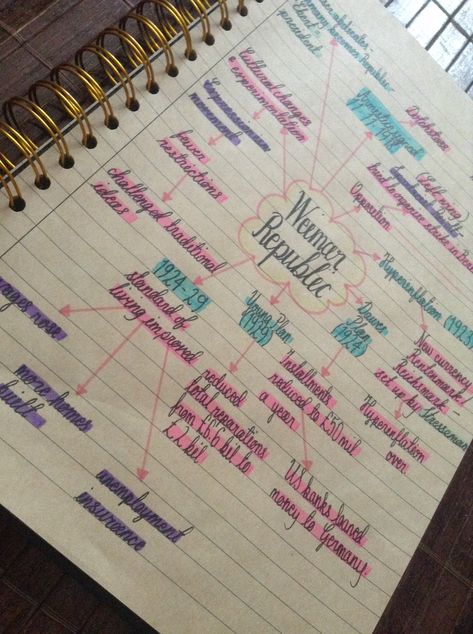 president
Cultural changes
& experimentation
Expressionism
movement
fewer
restrictions
challenged traditional
ideas
Weimar
Republic
Opposition
Left wing
Hyperinflation (1923)
New currency
Rentenmark
Reichsmark -
set up by Stresemann
Hyperinflation
over.
Dawes
Plan
(1924)
Installments
reduced to £50mil
a year
US banks loaned
money to Germany
Young Plan
reduced
total reparations
from £6.6 bil to
£2 bil
1924-29
standard of
living improved
wages rose
more homes
built
unemployment
insurance